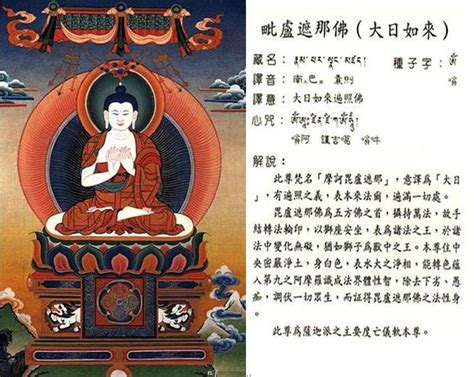 毗盧遮那佛（大日如來）
藏名：
種子字：
譯音：南．巴。囊則
譯意：大日如來遍照佛
心咒：
嗡阿
解說：
此尊梵名「摩訶毘盧遮那」，意譯爲「大日
」，有遍照之義，表本來法爾，遍滿一切處。
毘盧遮那佛爲五方佛之首，攝持萬法，故手
結轉法輪印，以獅座安坐，表爲諸法之王，於諸
法中變化無礙，猶如獅子爲獸中之王。本尊住中
央密嚴淨土，身白色，表水大之淨相，能轉色蘊
入第九之阿摩羅識成法界體性智，除去下劣、愚
痴，調伏一切眾生，而証得毘盧遮那佛之法性身
。
此尊爲薩迦派之主要度亡儀軌本尊。